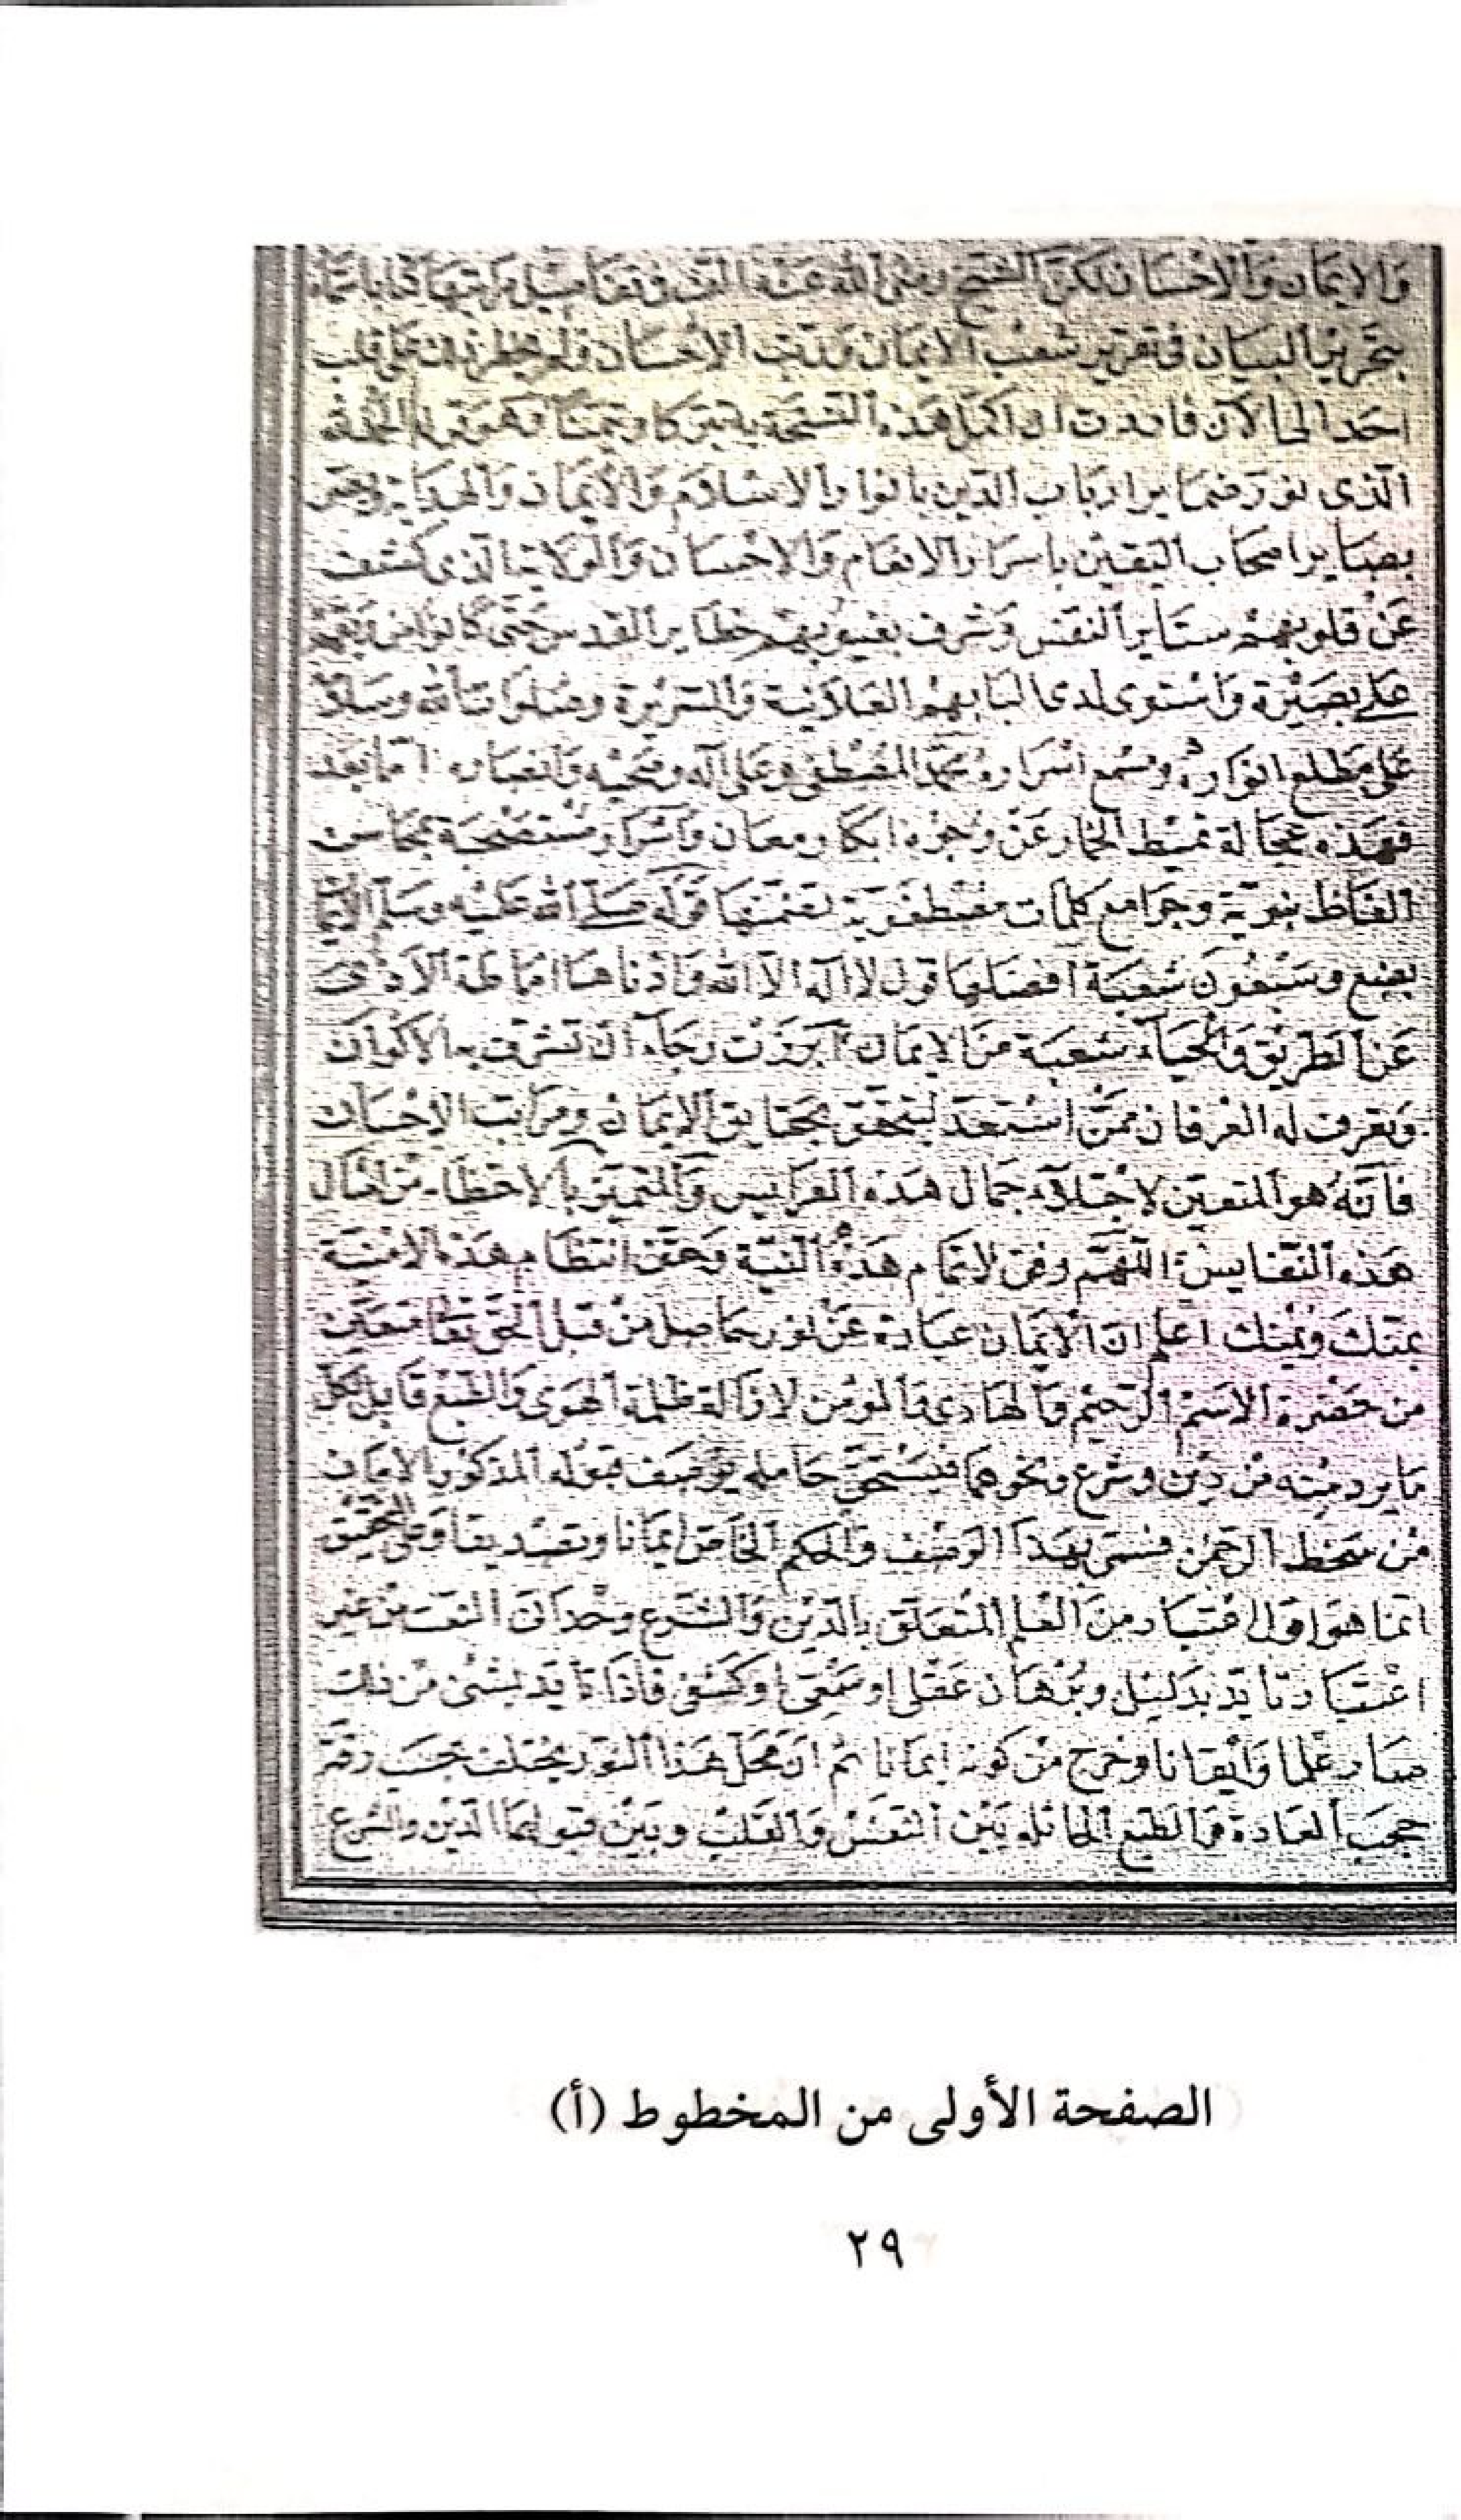 والايمان والاحسان لكن الشيخ رضى الله عنه
البيان فى تقرير شعب الايمان ورتب الاحسان ولم يخطر ذلك على قلب
احد الى الآن فاردت ان اكمل هذه النسخة به تبركا وتيمنا وهو قوله الحمد لله
الذى نور ضماير ارباب الدين بانوار الاسلام والايمان والهداية
بصاير اصحاب اليقين باسرار الانعام والاحسان والولاية الذى كشف
عن قلوبهم ستاير النفس وشرف بغيوبهم حظاير القدس حتى كانوا من
على بصيرة واستوى لدى البابهم العلانية والسريرة وصلوات الله وسلامه
على مطلع انواره ومنبع اسراره محمد المصطفى وعلى آله وصحبه وانصاره اما بعد
فهذه عجالة تميط الخمار عن وجوه ابكار معان واسرار مستصحبة بمحاسن
الفاظ نبوية وجوامع كلمات مصطفوية تضمنها قوله صلى الله عليه وسلم الايمان
بضع وسبعون شعبة افضلها قول لا اله الا الله وادناها اماطة الاذى
عن الطريق والحياء شعبة من الايمان ابرزت رجاء ان تشرف بها الاكوان
وتعرف له العرفان ممن استعد ليتحقق بحقايق الايمان ومراتب الاحسان
فانه هو المتعين لاجتلاء جمال هذه العرايس والمتميز بالاحتظاء من
هذه النفايس اللهم وفق لاتمام هذه النية وحقق انتظام هذه الامنية
بمنك ويمنك اعلم ان الايمان عبارة عن نور حاصل من قبل الحق تعالى معين
من حضرة الاسم الرحيم والهادى والمؤمن لازالة ظلمة الهوى والطبع قابل لكل
ما يرد منه من دين وشرع ونحوهما فيستحق حامله بوصف قبوله المذكور الامان
من سخط الرحمن فسمى بهذا الوصف والحكم الخاص ايمانا وتصديقا وفى التحقيق
انما هو اول اعتبار من العلم المتعلق بالدين والشرع وحدانى النعت من غير
اعتبار تايد بدليل وبرهان عقلى او سمعى او كشفى فاذا تايد بشئ من ذلك
صار علما وايقانا وخرج من كونه ايمانا ثم ان محل هذا النور يختلف بحسب رقة
حجب العادة والطبع الحائلة بين النفس والقلب وبين قبولهما الدين والشرع
الصفحة الأولى من المخطوط (أ)
٢٩